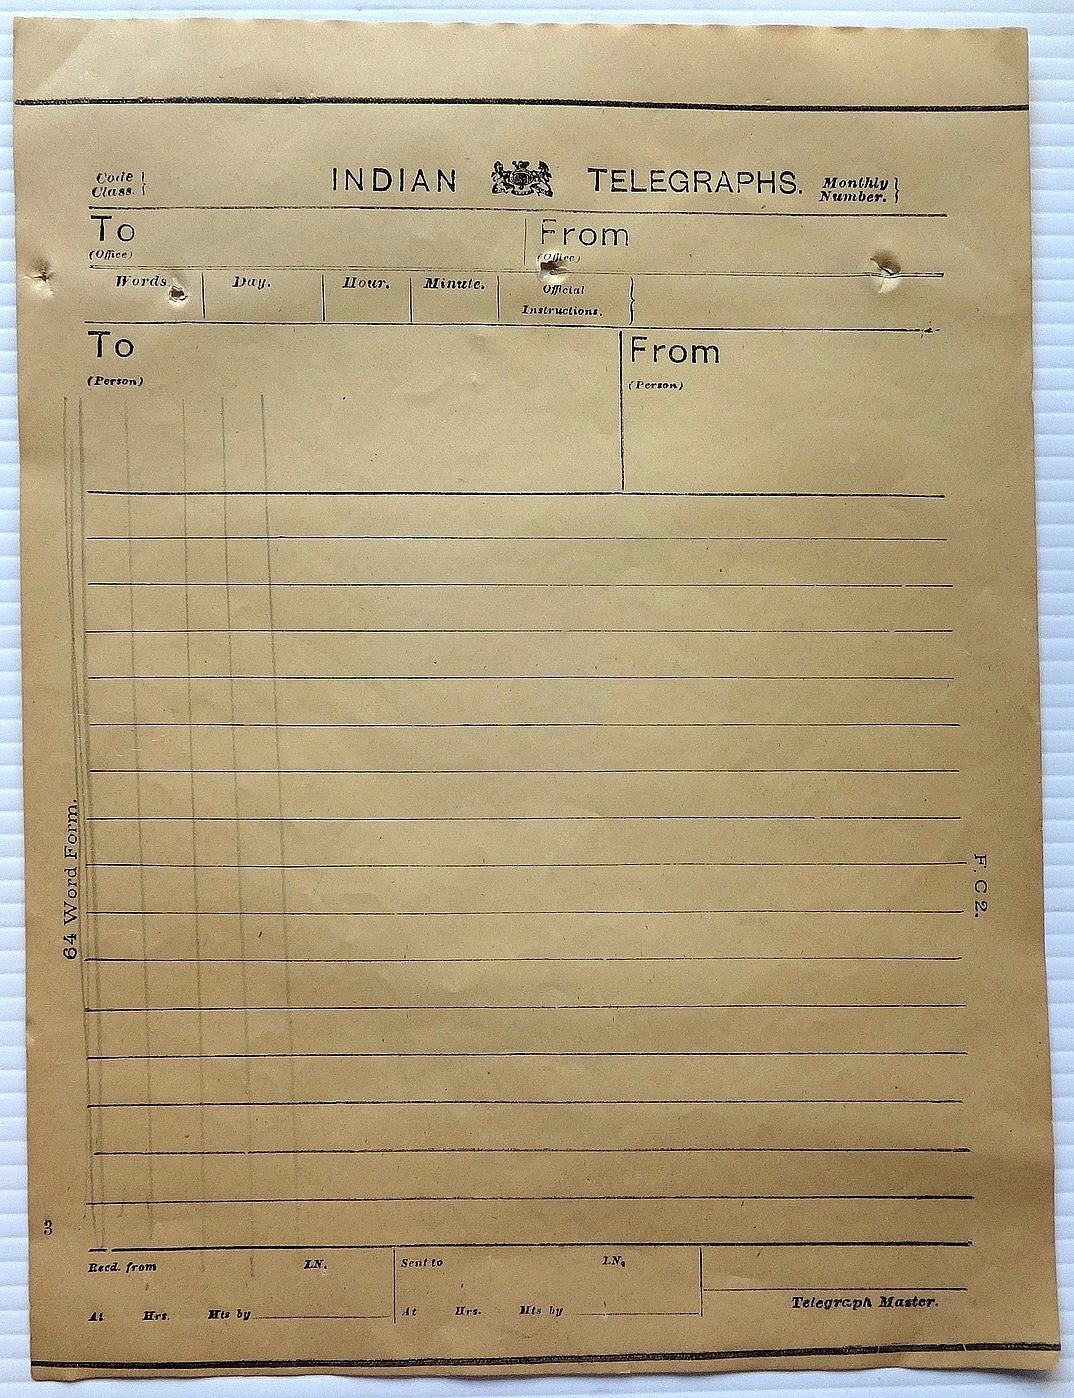 Code } INDIAN TELEGRAPHS. Monthly }
Class. Number.
To From
(Office) (Office)
Words. Day. Hour. Minute. Official
Instructions.
To From
(Person) (Person)
64 Word Form.
F. C 2.
3
Recd. from I.N. Sent to I.N.
At Hrs. Mts by At Hrs. Mts by
Telegraph Master.